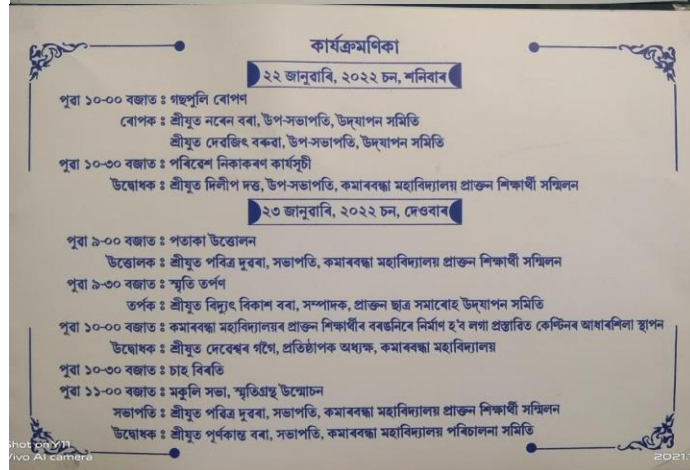 কাৰ্যক্ৰমণিকা
২২ জানুৱাৰি, ২০২২ চন, শনিবাৰ
পুৱা ১০-০০ বজাত ঃ গছপুলি ৰোপণ
ৰোপক ঃ শ্ৰীযুত নৰেন বৰা, উপ-সভাপতি, উদ্‌যাপন সমিতি
শ্ৰীযুত দেৱজিৎ বৰুৱা, উপ-সভাপতি, উদ্‌যাপন সমিতি
পুৱা ১০-৩০ বজাত ঃ পৰিৱেশ নিকাকৰণ কাৰ্যসূচী
উদ্বোধক ঃ শ্ৰীযুত দিলীপ দত্ত, উপ-সভাপতি, কমাৰবন্ধা মহাবিদ্যালয় প্ৰাক্তন শিক্ষাৰ্থী সন্মিলন
২৩ জানুৱাৰি, ২০২২ চন, দেওবাৰ
পুৱা ৯-০০ বজাত ঃ পতাকা উত্তোলন
উত্তোলক ঃ শ্ৰীযুত পবিত্ৰ দুৱৰা, সভাপতি, কমাৰবন্ধা মহাবিদ্যালয় প্ৰাক্তন শিক্ষাৰ্থী সন্মিলন
পুৱা ৯-৩০ বজাত ঃ স্মৃতি তৰ্পণ
তৰ্পক ঃ শ্ৰীযুত বিদ্যুৎ বিকাশ বৰা, সম্পাদক, প্ৰাক্তন ছাত্ৰ সমাৰোহ উদ্‌যাপন সমিতি
পুৱা ১০-০০ বজাত ঃ কমাৰবন্ধা মহাবিদ্যালয়ৰ প্ৰাক্তন শিক্ষাৰ্থীৰ বৰঙনিৰে নিৰ্মাণ হ'ব লগা প্ৰস্তাৱিত কেণ্টিনৰ আধাৰশিলা স্থাপন
উদ্বোধক ঃ শ্ৰীযুত দেৱেশ্বৰ গগৈ, প্ৰতিষ্ঠাপক অধ্যক্ষ, কমাৰবন্ধা মহাবিদ্যালয়
পুৱা ১০-৩০ বজাত ঃ চাহ বিৰতি
পুৱা ১১-০০ বজাত ঃ মকলি সভা, স্মৃতিগ্ৰন্থ উন্মোচন
সভাপতি ঃ শ্ৰীযুত পবিত্ৰ দুৱৰা, সভাপতি, কমাৰবন্ধা মহাবিদ্যালয় প্ৰাক্তন শিক্ষাৰ্থী সন্মিলন
উদ্বোধক ঃ শ্ৰীযুত পূৰ্ণকান্ত বৰা, সভাপতি, কমাৰবন্ধা মহাবিদ্যালয় পৰিচালনা সমিতি
Shot on Y11
Vivo AI camera
2021